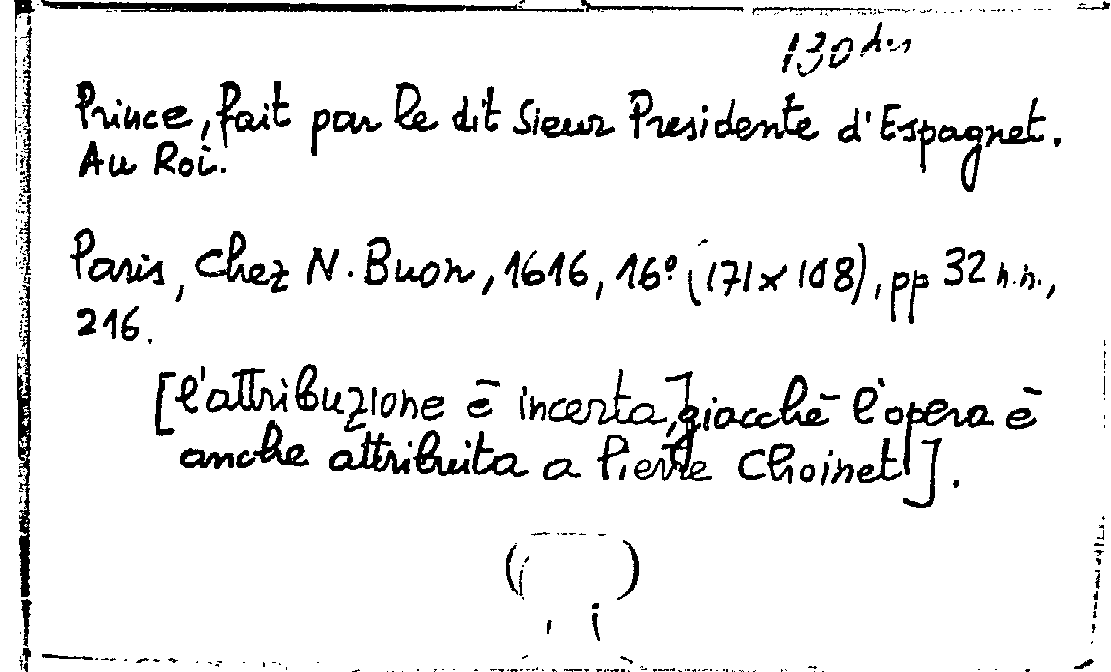 130 bis
Prince, fait par le dit Sieur Presidente d'Espagnet.
Au Roi.
Paris, chez N. Buon, 1616, 16° (171 x 108), pp 32 n.n.,
216.
[l'attribuzione è incerta,] giacchè l'opera è
anche attribuita a Pierre Choinet].